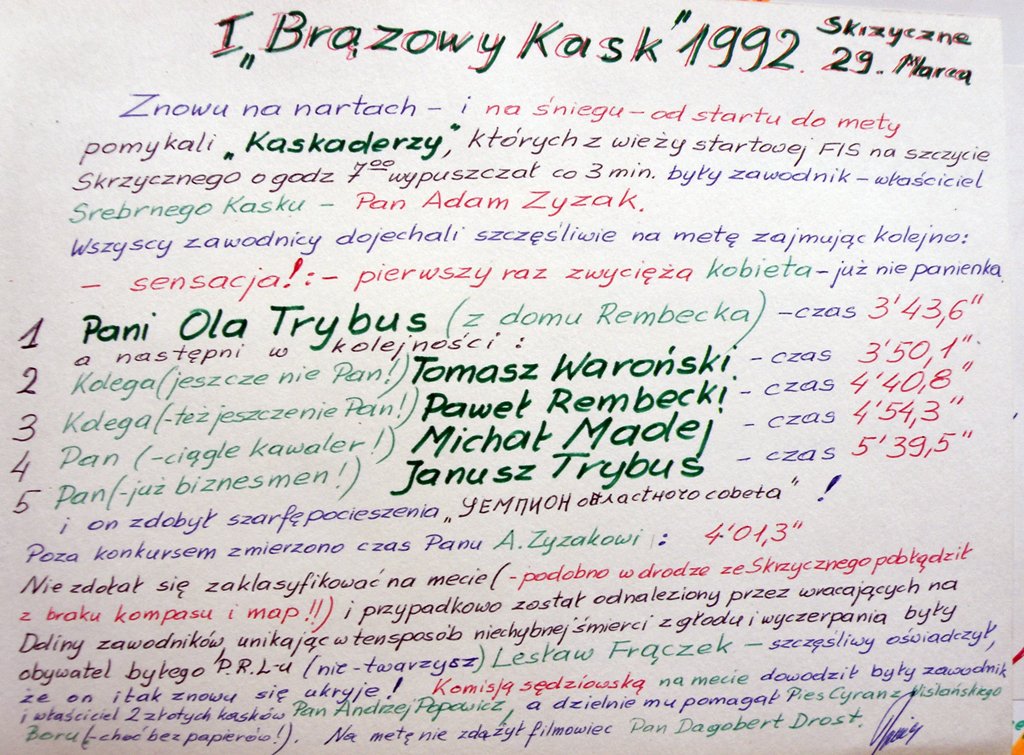 I „Brązowy Kask" 1992. Skrzyczne
29. Marca
Znowu na nartach – i na śniegu – od startu do mety
pomykali „Kaskaderzy", których z wieży startowej FIS na szczycie
Skrzycznego o godz 7⁰⁰ wypuszczał co 3 min. były zawodnik – właściciel
Srebrnego Kasku – Pan Adam Zyzak.
Wszyscy zawodnicy dojechali szczęśliwie na metę zajmując kolejno:
– sensacja!: – pierwszy raz zwycięża kobieta – już nie panienka
1 Pani Ola Trybus (z domu Rembecka) – czas 3'43,6"
a następni w kolejności:
2 Kolega (jeszcze nie Pan!) Tomasz Waroński. – czas 3'50,1"
3 Kolega (–też jeszczenie Pan!) Paweł Rembecki – czas 4'40,8"
4 Pan (–ciągle kawaler!) Michał Madej – czas 4'54,3"
5 Pan (–już biznesmen!) Janusz Trybus – czas 5'39,5"
i on zdobył szarfę pocieszenia „ЧЕМПИОН областного совета"!
Poza konkursem zmierzono czas Panu A. Zyzakowi: 4'01,3"
Nie zdołał się zaklasyfikować na mecie (–podobno w drodze ze Skrzycznego pobłądził
z braku kompasu i map!!) i przypadkowo został odnaleziony przez wracających na
Doliny zawodników, unikając w tensposób niechybnej śmierci z głodu i wyczerpania były
obywatel byłego P.R.L-u (nie-twarzysz) Lesław Frączek – szczęśliwy oświadczył,
że on i tak znowu się ukryje! Komisją sędziowską na mecie dowodził były zawodnik
i właściciel 2 złotych kasków Pan Andrzej Popowicz, a dzielnie mu pomagał Pies Cyran z Wiślańskiego
Boru (–choć bez papierów!). Na metę nie zdążył filmowiec Pan Dagobert Drost.